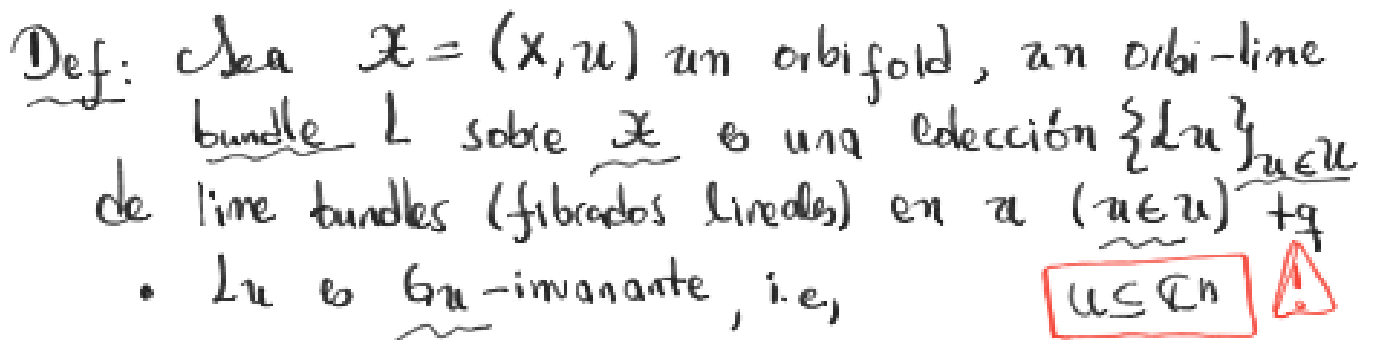 Def: Sea 𝒳 = (X, 𝒰) un orbifold, an orbi-line
bundle L sobre 𝒳 es una colección {Lu}u∈𝒰
de line bundles (fibrados lineales) en u (u∈𝒰) tq
• Lu es Gu-invariante, i.e, U ⊆ ℂn !